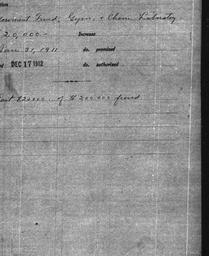 tion
Endowment Fund, Gyn. & Chem. Laboratory
20,000.- Increase
Jan 31, 1911 do. promised
of DEC 17 1912 do. authorized
$20000. of $200 000 fund